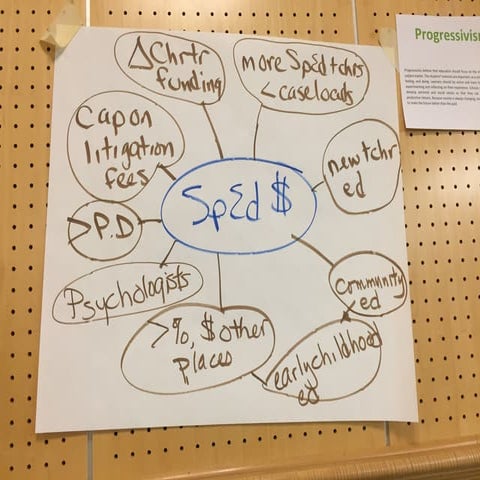 Δ Chrtr
funding
more SpEd tchrs
< caseloads
Cap on
litigation
fees
new tchr
ed
SpEd $
> P.D
Psychologists
community
ed
>%, $ other
places
early childhood
ed
Progressivism